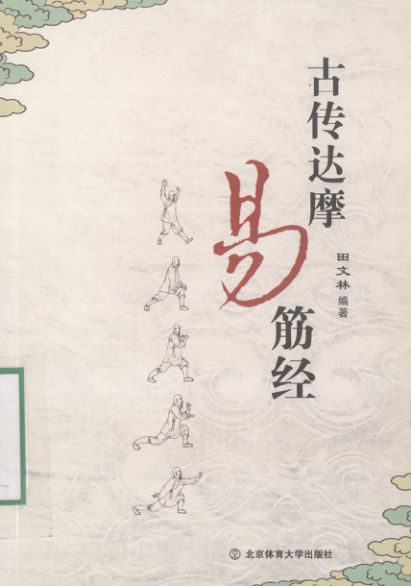 古传达摩
易
筋经
田文林 编著
北京体育大学出版社